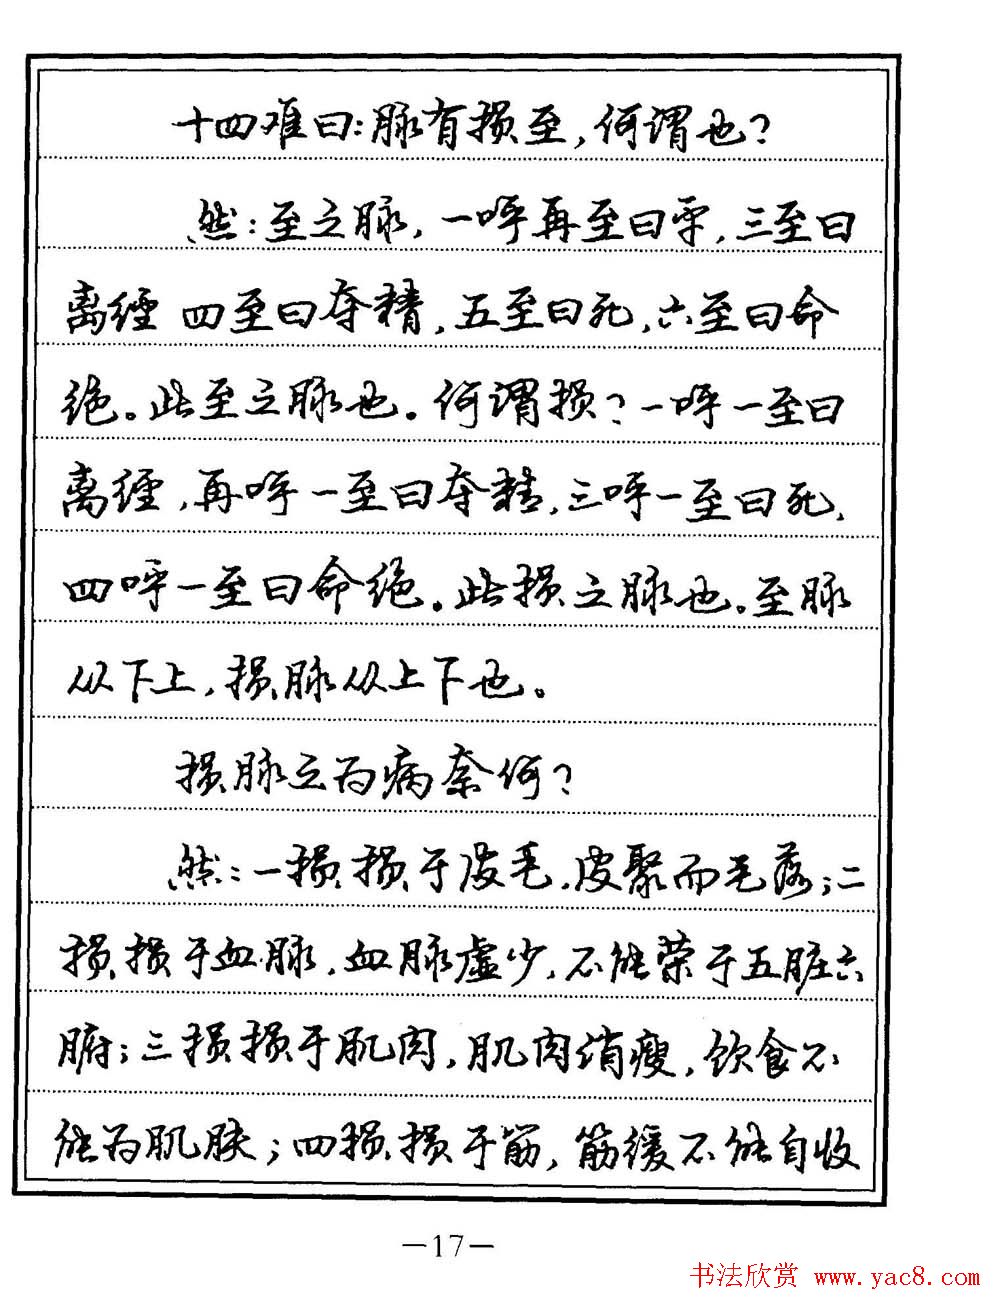 十四难曰:脉有损至,何谓也?
然:至之脉,一呼再至曰平,三至曰
离经 四至曰夺精,五至曰死,六至曰命
绝。此至之脉也。何谓损?一呼一至曰
离经,再呼一至曰夺精,三呼一至曰死,
四呼一至曰命绝。此损之脉也。至脉
从下上,损脉从上下也。
损脉之为病奈何?
然:一损损于皮毛,皮聚而毛落;二
损损于血脉,血脉虚少,不能荣于五脏六
腑;三损损于肌肉,肌肉消瘦,饮食不
能为肌肤;四损损于筋,筋缓不能自收
—17—
书法欣赏 www.yac8.com